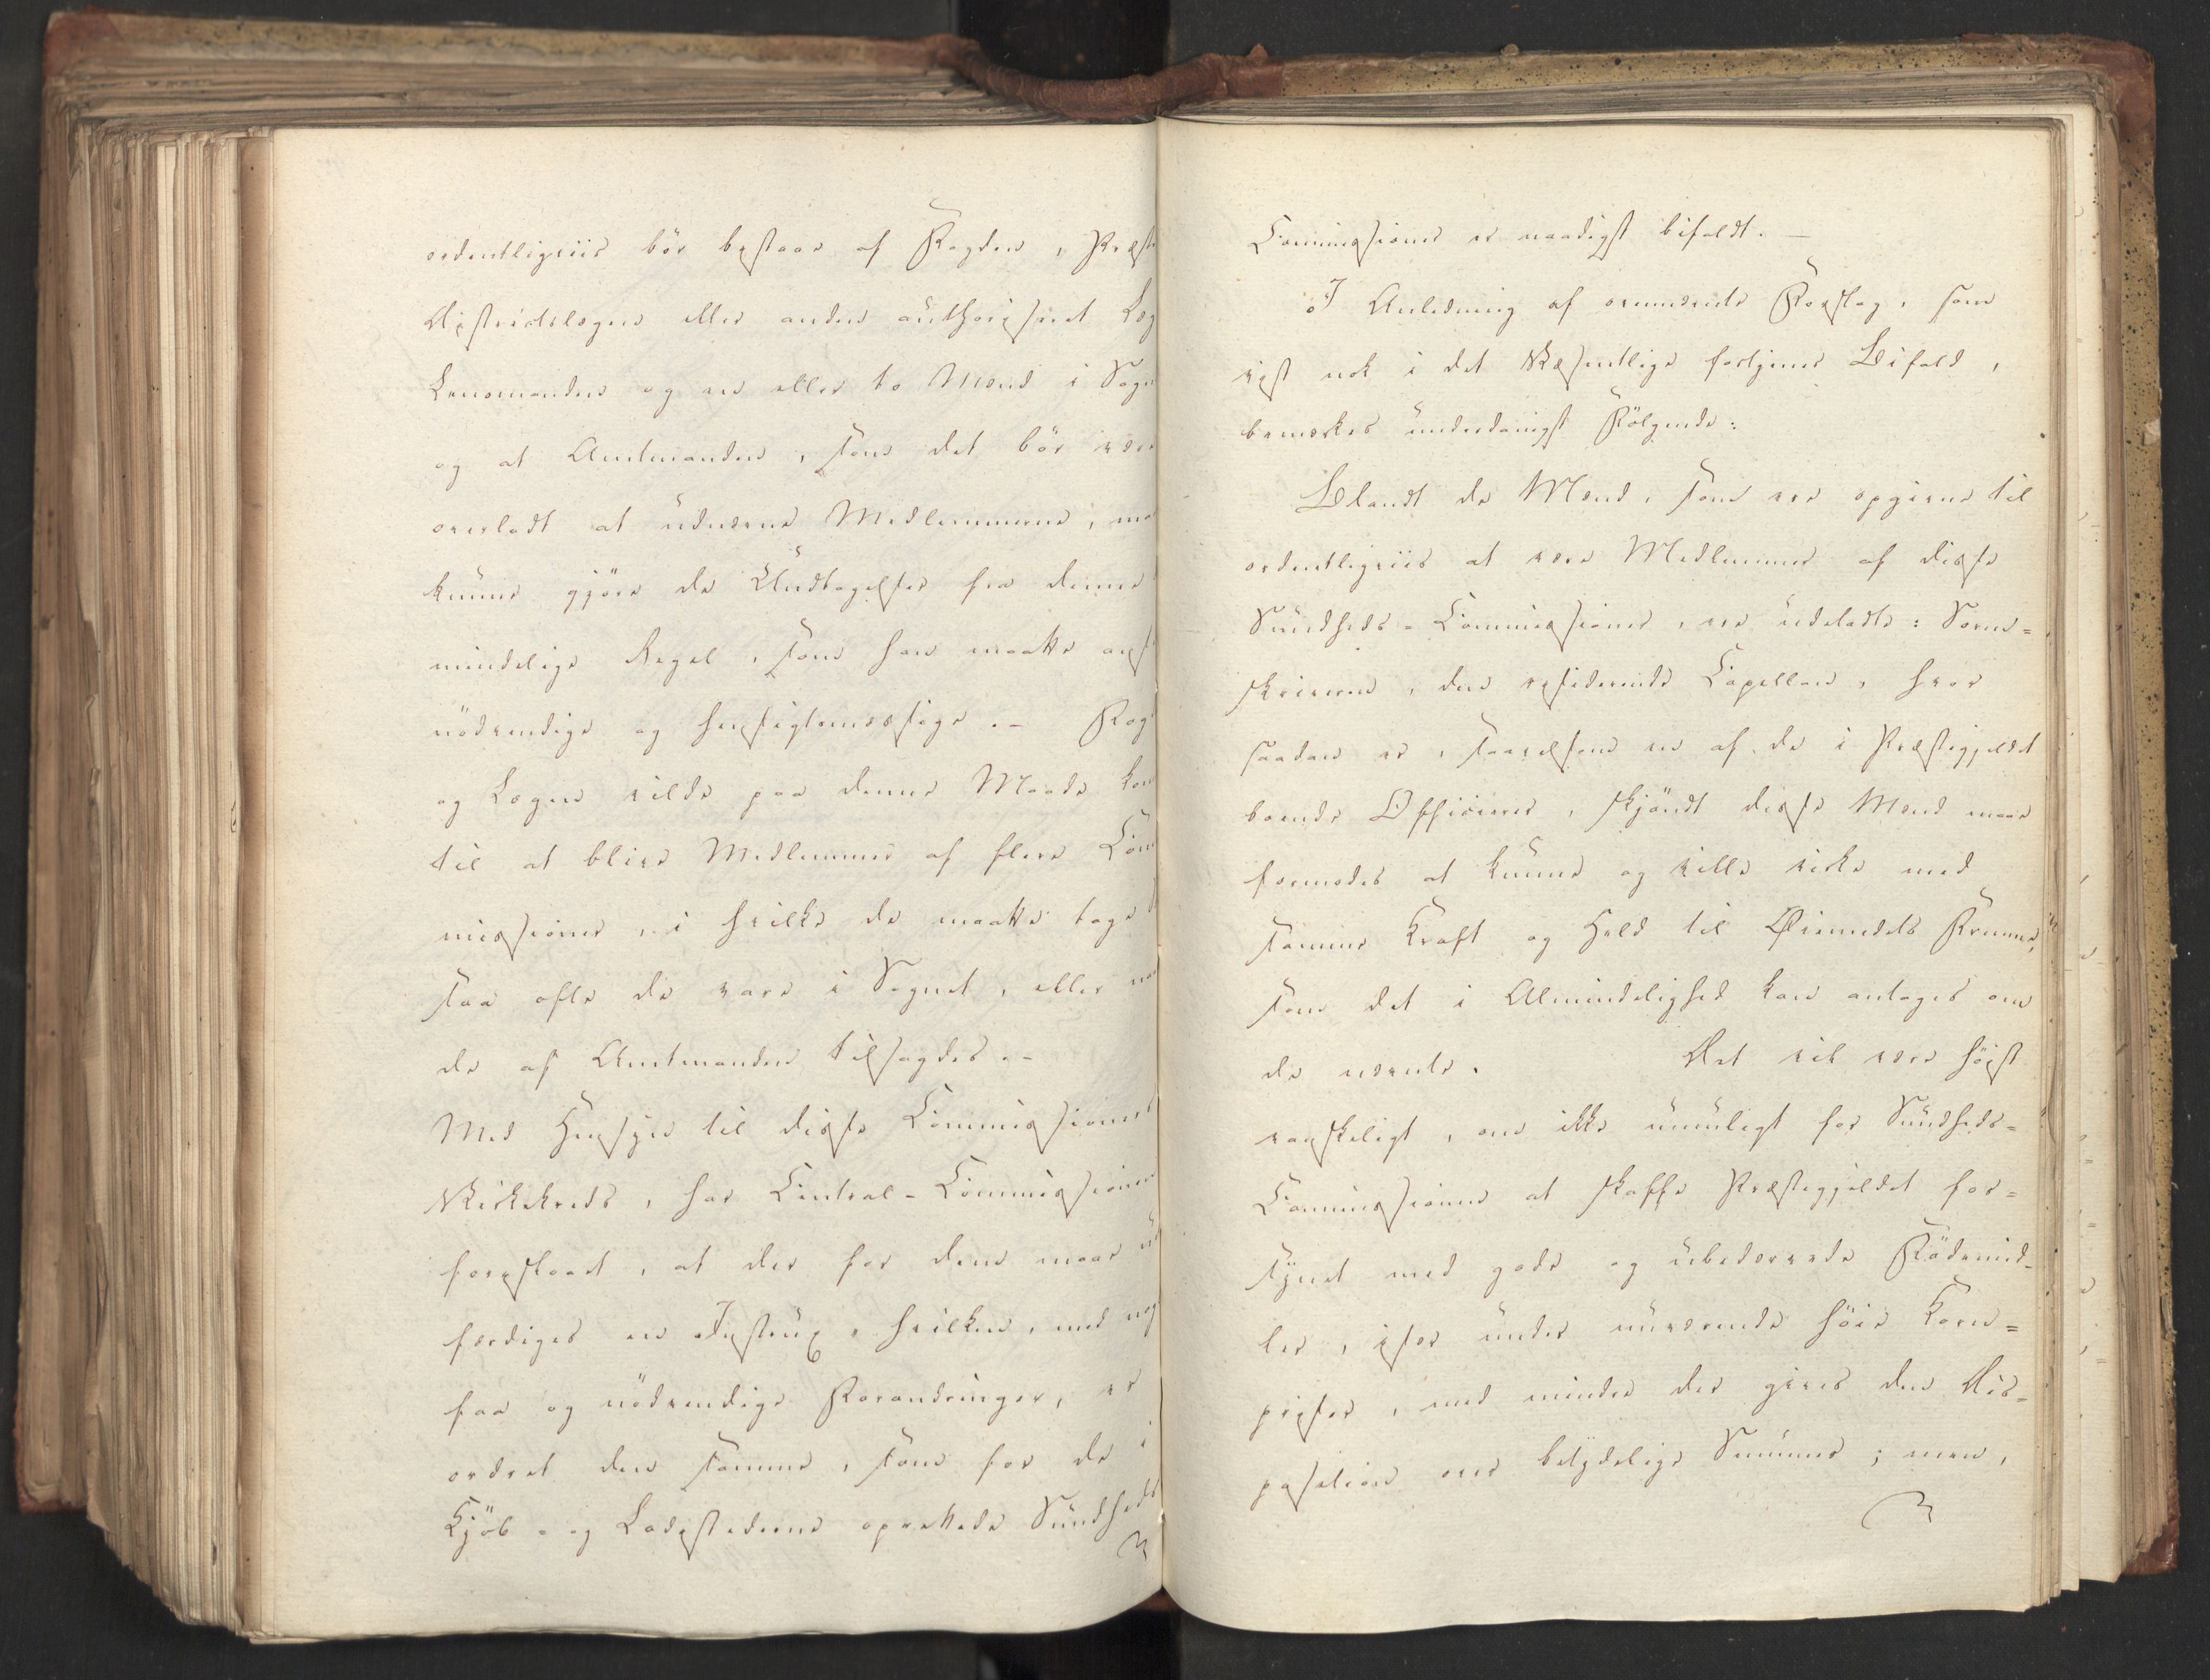 ordentligviis bör bestaae af Fogden, Præst
Districtslægen eller anden authoriseret Læg
Lensmanden og en eller to Mænd i Sogn
og at Amtmanden, som det bör være
overladt at udnævne Medlemmerne, maa
kunne gjöre de Undtagelser fra denne
mindelige Regel, som han maatte anse
nödvendige og hensigtsmæssige. – Fog
og Lægen vilde paa denne Maade kom
til at blive Medlemmer af flere Com
missioner, i hvilke de maatte tage
saa ofte de vare i Sognet, eller naar
de af Amtmanden tilsagdes. –
Med Hensyn til disse Commissioners
Virkekreds, har Central-Commissionen
foreslaaet, at der for dem maae ud
færdiges en Instrux, hvilken, med nog
faa og nödvendige Forandringer, er
ordret den samme, som for de i
Kjöb- og Ladestederne oprettede Sundheds
Commissioner er naadigst bifaldt. –
I Anledning af ovennævnte Forslag, som
vist nok i det Væsentlige fortjener Bifald,
bemærkes underdanigst Fölgende:
Blandt de Mænd, som ere opgivne til
ordentligviis at være Medlemmer af disse
Sundheds-Commissioner, ere udeladte: Soren=
skriveren, den residerende Capellan, hvor
saadan er, saavelsom en af de i Præstegjeldet
boende Officierer, skjöndt disse Mænd maae
formodes at kunne og ville virke med
samme Kraft og Held til Øiemedets Fremme,
som det i Almindelighed kan antages om
de nævnte. Det vil være höist
vanskeligt, om ikke umuligt for Sundheds=
Commissionen at skaffe Præstegjeldet for=
synet med gode og ubedærvede Födemid-
ler, især under nuværende höie Korn=
priser, med mindre der gives den Dis-
position over betydelige Summer; men,